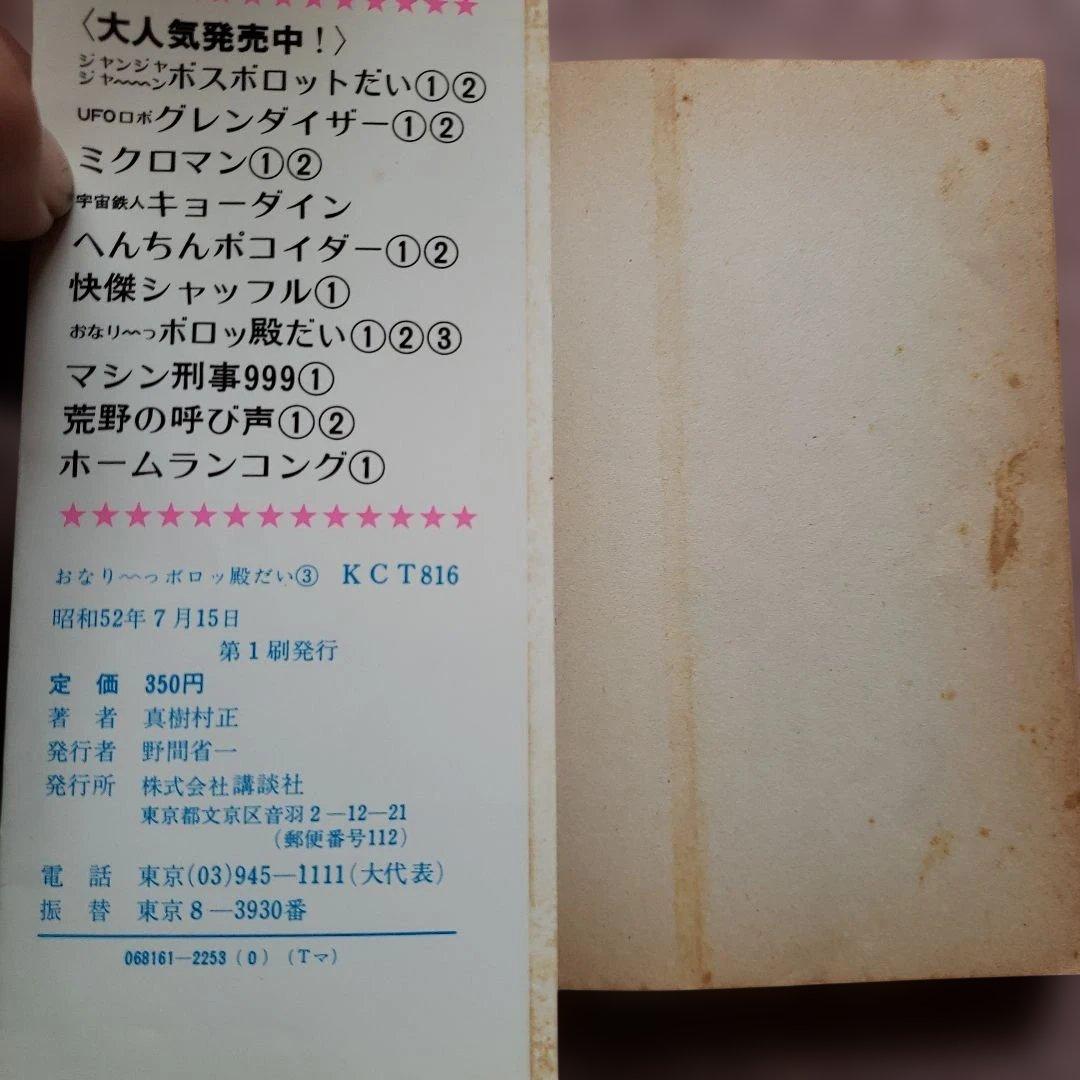 〈大人気発売中！〉
ジャンジャジャ〜〜ンボスボロットだい①②
UFOロボグレンダイザー①②
ミクロマン①②
宇宙鉄人キョーダイン
へんちんポコイダー①②
快傑シャッフル①
おなり〜っボロッ殿だい①②③
マシン刑事999①
荒野の呼び声①②
ホームランコング①
★★★★★★★★★★★★★
おなり〜っボロッ殿だい③ KCT816
昭和52年7月15日
第1刷発行
定 価 350円
著 者 真樹村正
発行者 野間省一
発行所 株式会社講談社
東京都文京区音羽2―12―21
（郵便番号112）
電 話 東京(03)945―1111(大代表)
振 替 東京8―3930番
068161―2253（0）（Tマ）